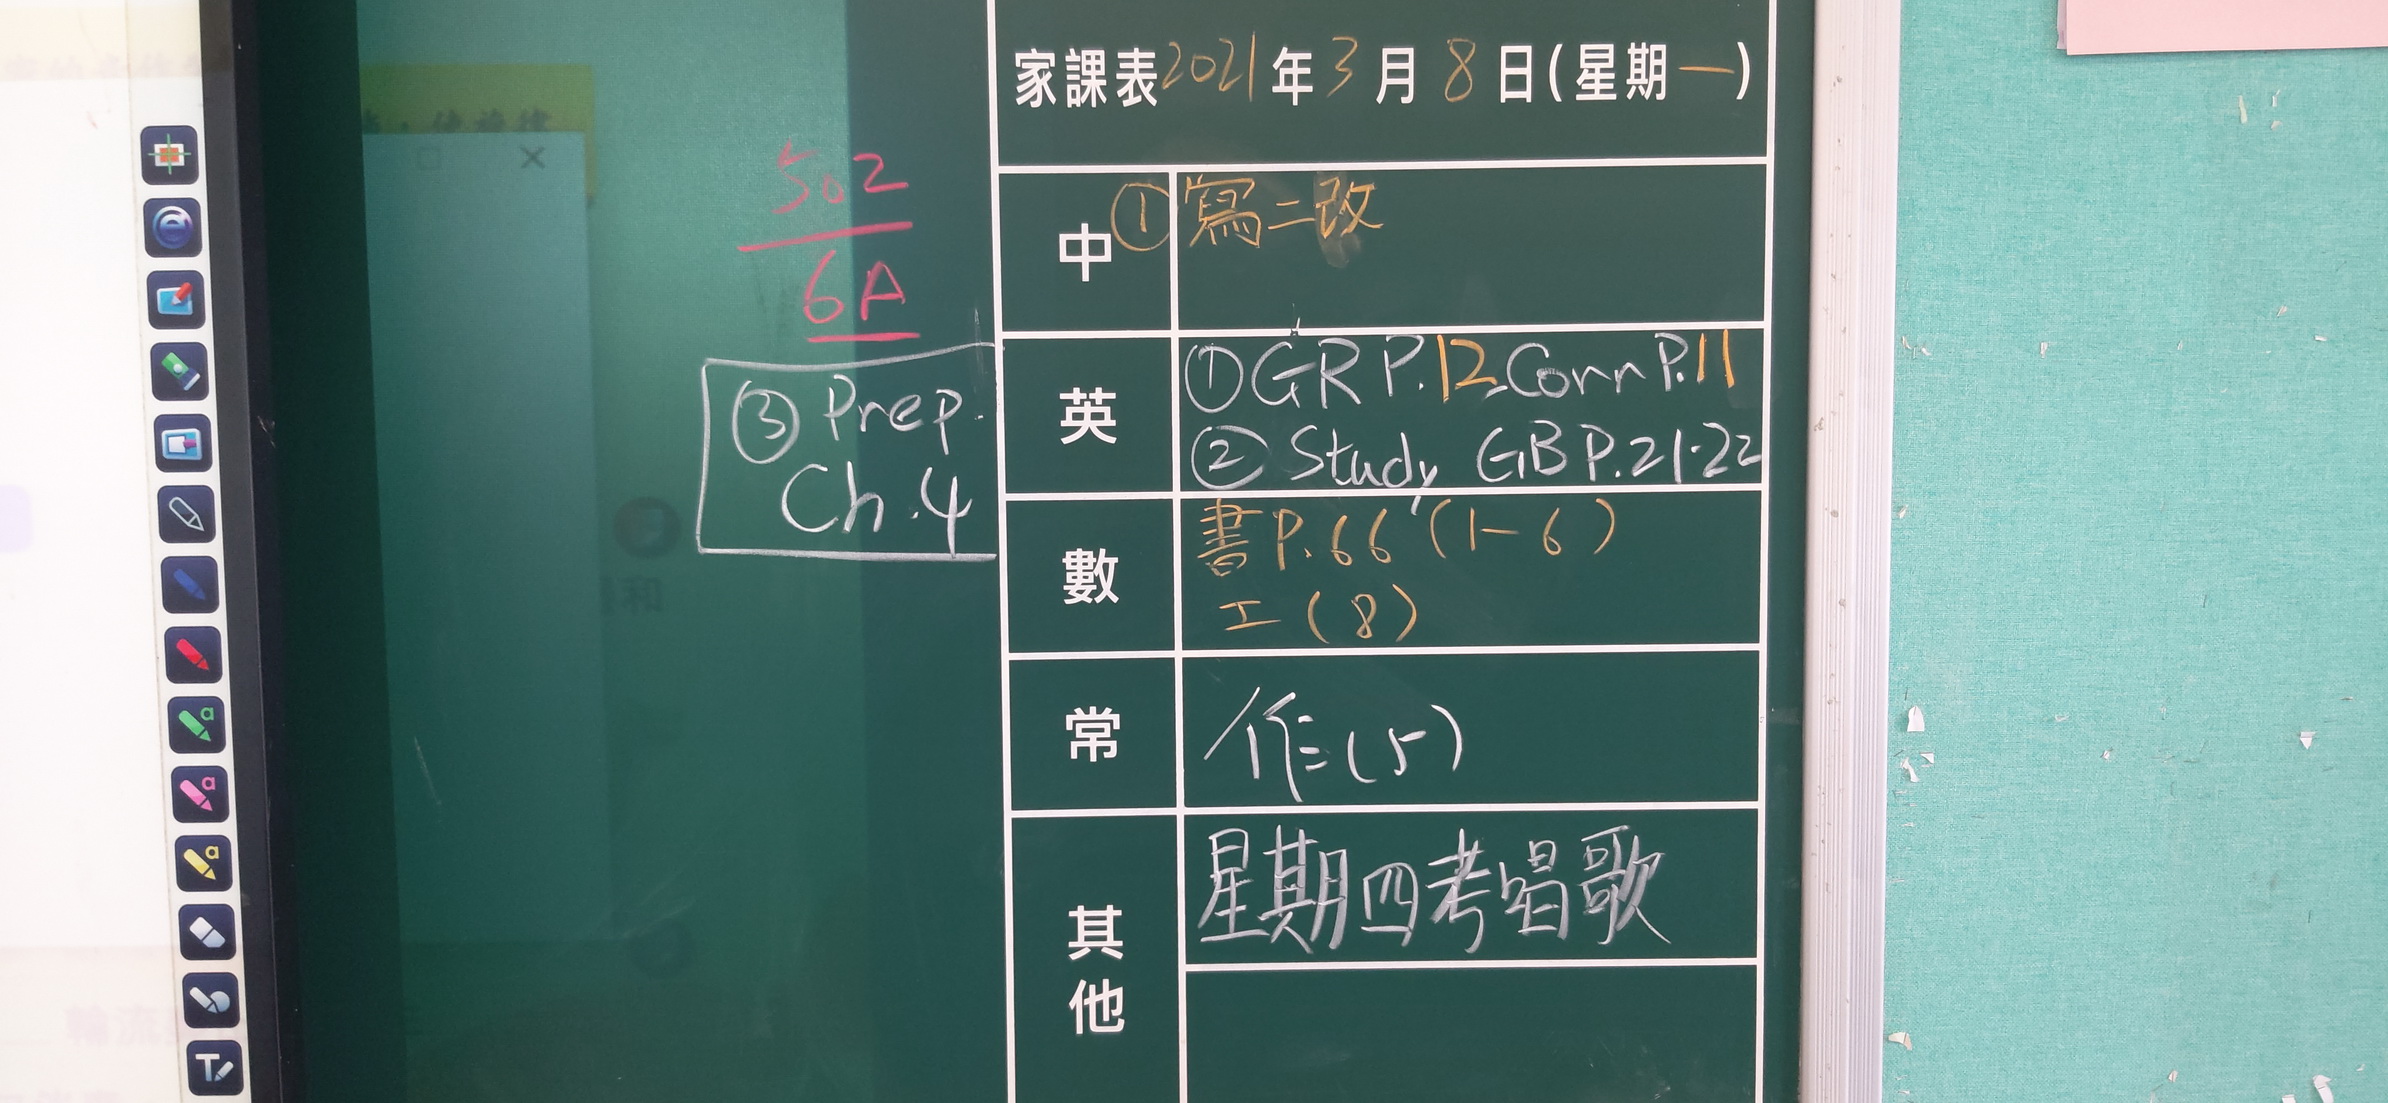 家課表2021年3月8日(星期一)
502
6A
中
① 寫二改
英
① GR P.12 Corr P.11
② Study GB P.21-22
③ Prep.
Ch.4
數
書P.66 (1-6)
工(8)
常
作(5)
其他
星期四考唱歌
輪流
和